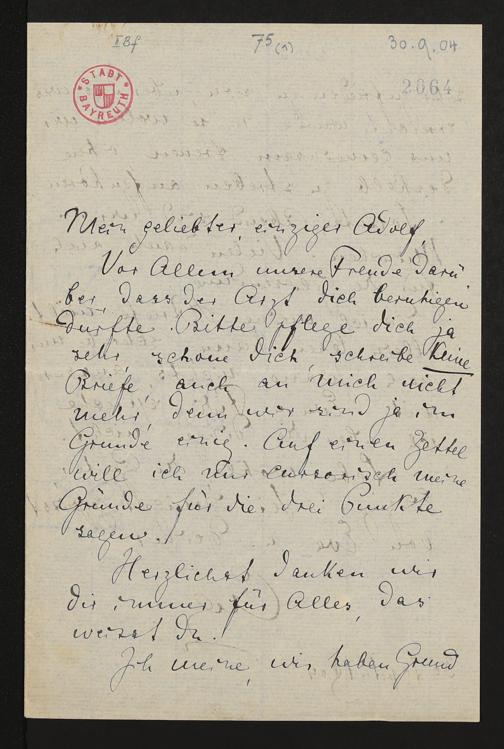 IBf
75 (1)
30.9.04
2064
STADT BAYREUTH
Mein geliebter, einziger Adolf
Vor Allem unsere Freude darü
ber, dass der Arzt dich beruhigen
durfte. Bitte pflege dich ja
sehr, schone dich, schreibe keine
Briefe, auch an mich nicht
mehr, denn wir sind ja im
Grunde einig. Auf einen Zettel
will ich nur cursorisch meine
Gründe für die drei Punkte
sagen.
Herzlichst danken wir
dir immer für Alles, das
weisst Du!
Ich meine, wir haben Grund